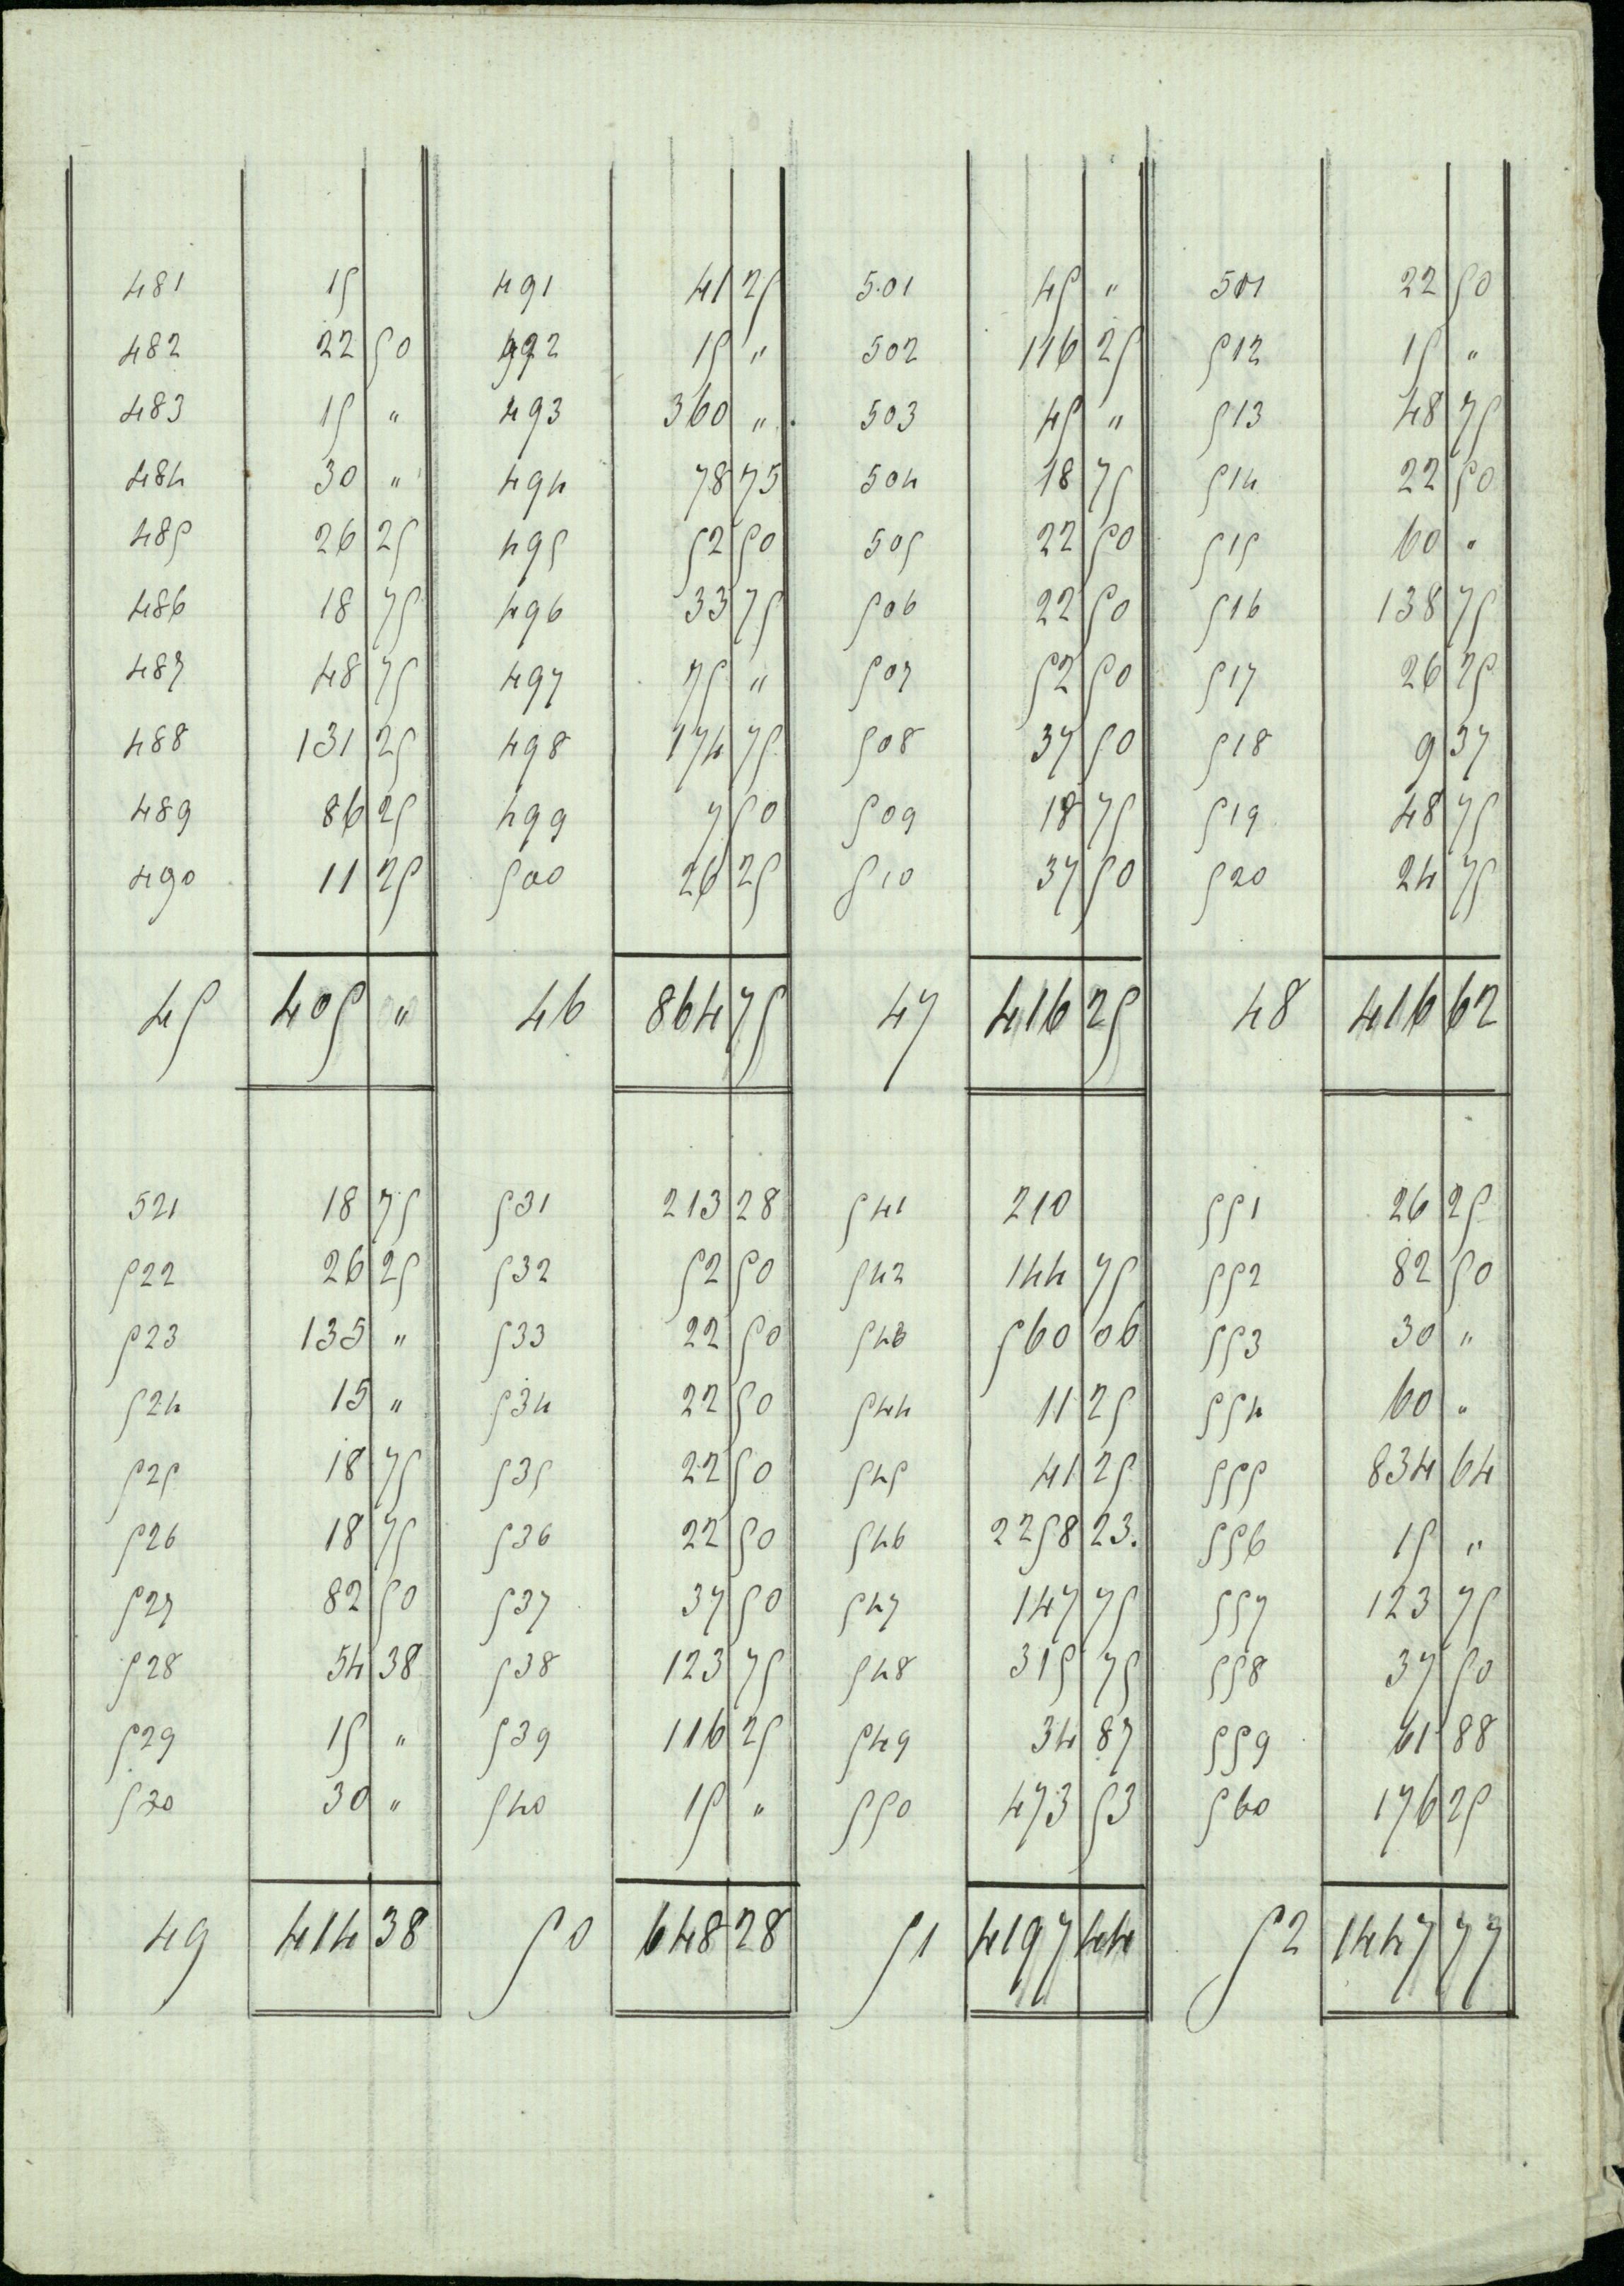 481 15 491 41 25 501 45 " 511 22 50
482 22 50 492 15 " 502 116 25 512 15 "
483 15 " 493 360 " 503 45 " 513 48 75
484 30 " 494 78 75 504 18 75 514 22 50
485 26 25 495 52 50 505 22 50 515 60 "
486 18 75 496 33 75 506 22 50 516 138 75
487 48 75 497 75 " 507 52 50 517 26 25
488 131 25 498 174 75 508 37 50 518 9 37
489 86 25 499 7 50 509 18 75 519 48 75
490 11 25 500 26 25 510 37 50 520 24 75
45 405 " 46 864 75 47 416 25 48 416 62
521 18 75 531 213 28 541 210 551 26 25
522 26 25 532 52 50 542 144 75 552 82 50
523 135 " 533 22 50 543 560 06 553 30 "
524 15 " 534 22 50 544 11 25 554 60 "
525 18 75 535 22 50 545 41 25 555 834 64
526 18 75 536 22 50 546 2258 23. 556 15 "
527 82 50 537 37 50 547 147 75 557 123 75
528 54 38 538 123 75 548 315 75 558 37 50
529 15 " 539 116 25 549 34 87 559 61 88
530 30 " 540 15 " 550 473 53 560 176 25
49 414 38 50 648 28 51 4197 44 52 1447 77